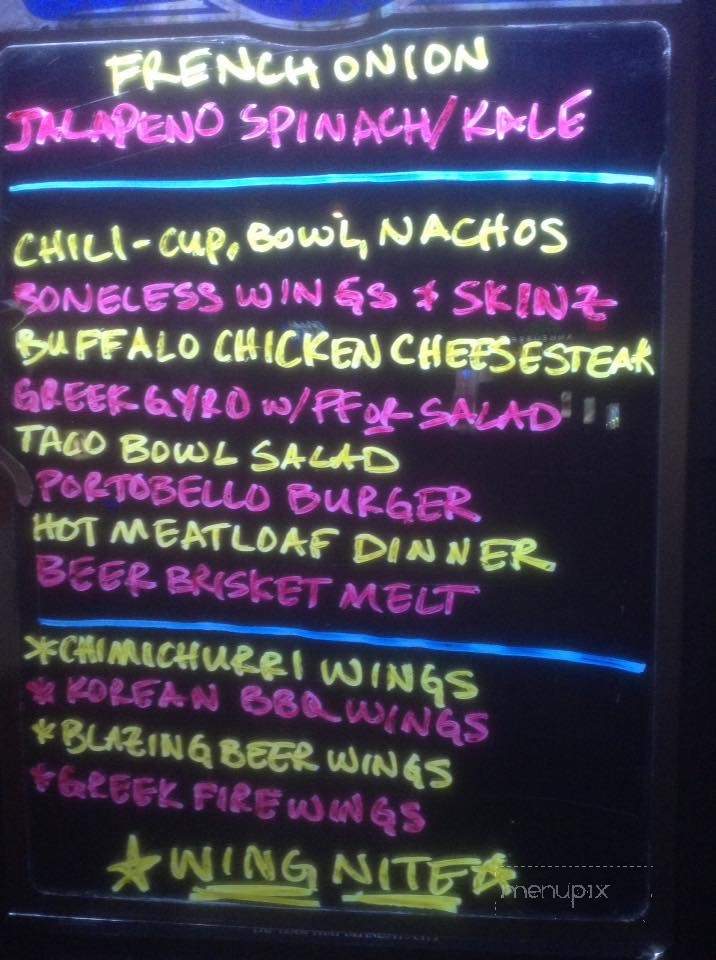 FRENCH ONION
JALAPENO SPINACH/KALE
CHILI-CUP, BOWL, NACHOS
BONELESS WINGS & SKINZ
BUFFALO CHICKEN CHEESESTEAK
GREEK GYRO W/FF OR SALAD
TACO BOWL SALAD
PORTOBELLO BURGER
HOT MEATLOAF DINNER
BEER BRISKET MELT
*CHIMICHURRI WINGS
*KOREAN BBQ WINGS
*BLAZING BEER WINGS
*GREEK FIRE WINGS
☆ WING NITE ☆
menupix